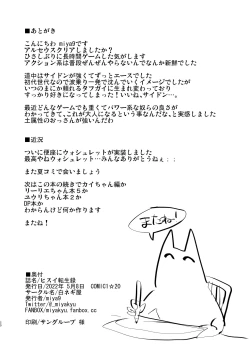 ■あとがき
こんにちわ miya9です
アルセウスクリアしましたか？
ひさしぶりに長時間ゲームした気がします
アクション系は普段ぜんぜんやらないんでなんか新鮮でした
道中はサイドンが強くてずっとエースでした
初代世代なので波乗り一発で沈んでいくイメージでしたが
いつのまにか頼れるタフガイに生まれ変わっており
すっかり好きになってしましたよ、ね、サイドン…。
最近どんなゲームでも重くてパワー系な奴らの良さが
わかってきて、これが大人になるという事なんだな、と実感しました
土属性のおっさんが強いんだわ
■近況
ついに便座にウォシュレットが実装しました
最高やねウォシュレット…みんなありがとうねぇ；；
また夏コミで会いましょう
次はこの本の続きでカイちゃん編か
リーリエちゃん本5か
ユウリちゃん本か
DP本か
わからんけど何か作ります
またね！
またね!
■奥付
誌名/ヒスイ転生録
発行日/2022年 5月8日 COMIC1☆20
サークル名/白ネギ屋
発行者/miya9
Twitter/@_miyakyu
FANBOX/miyakyu.fanbox.cc
印刷/サングループ 様